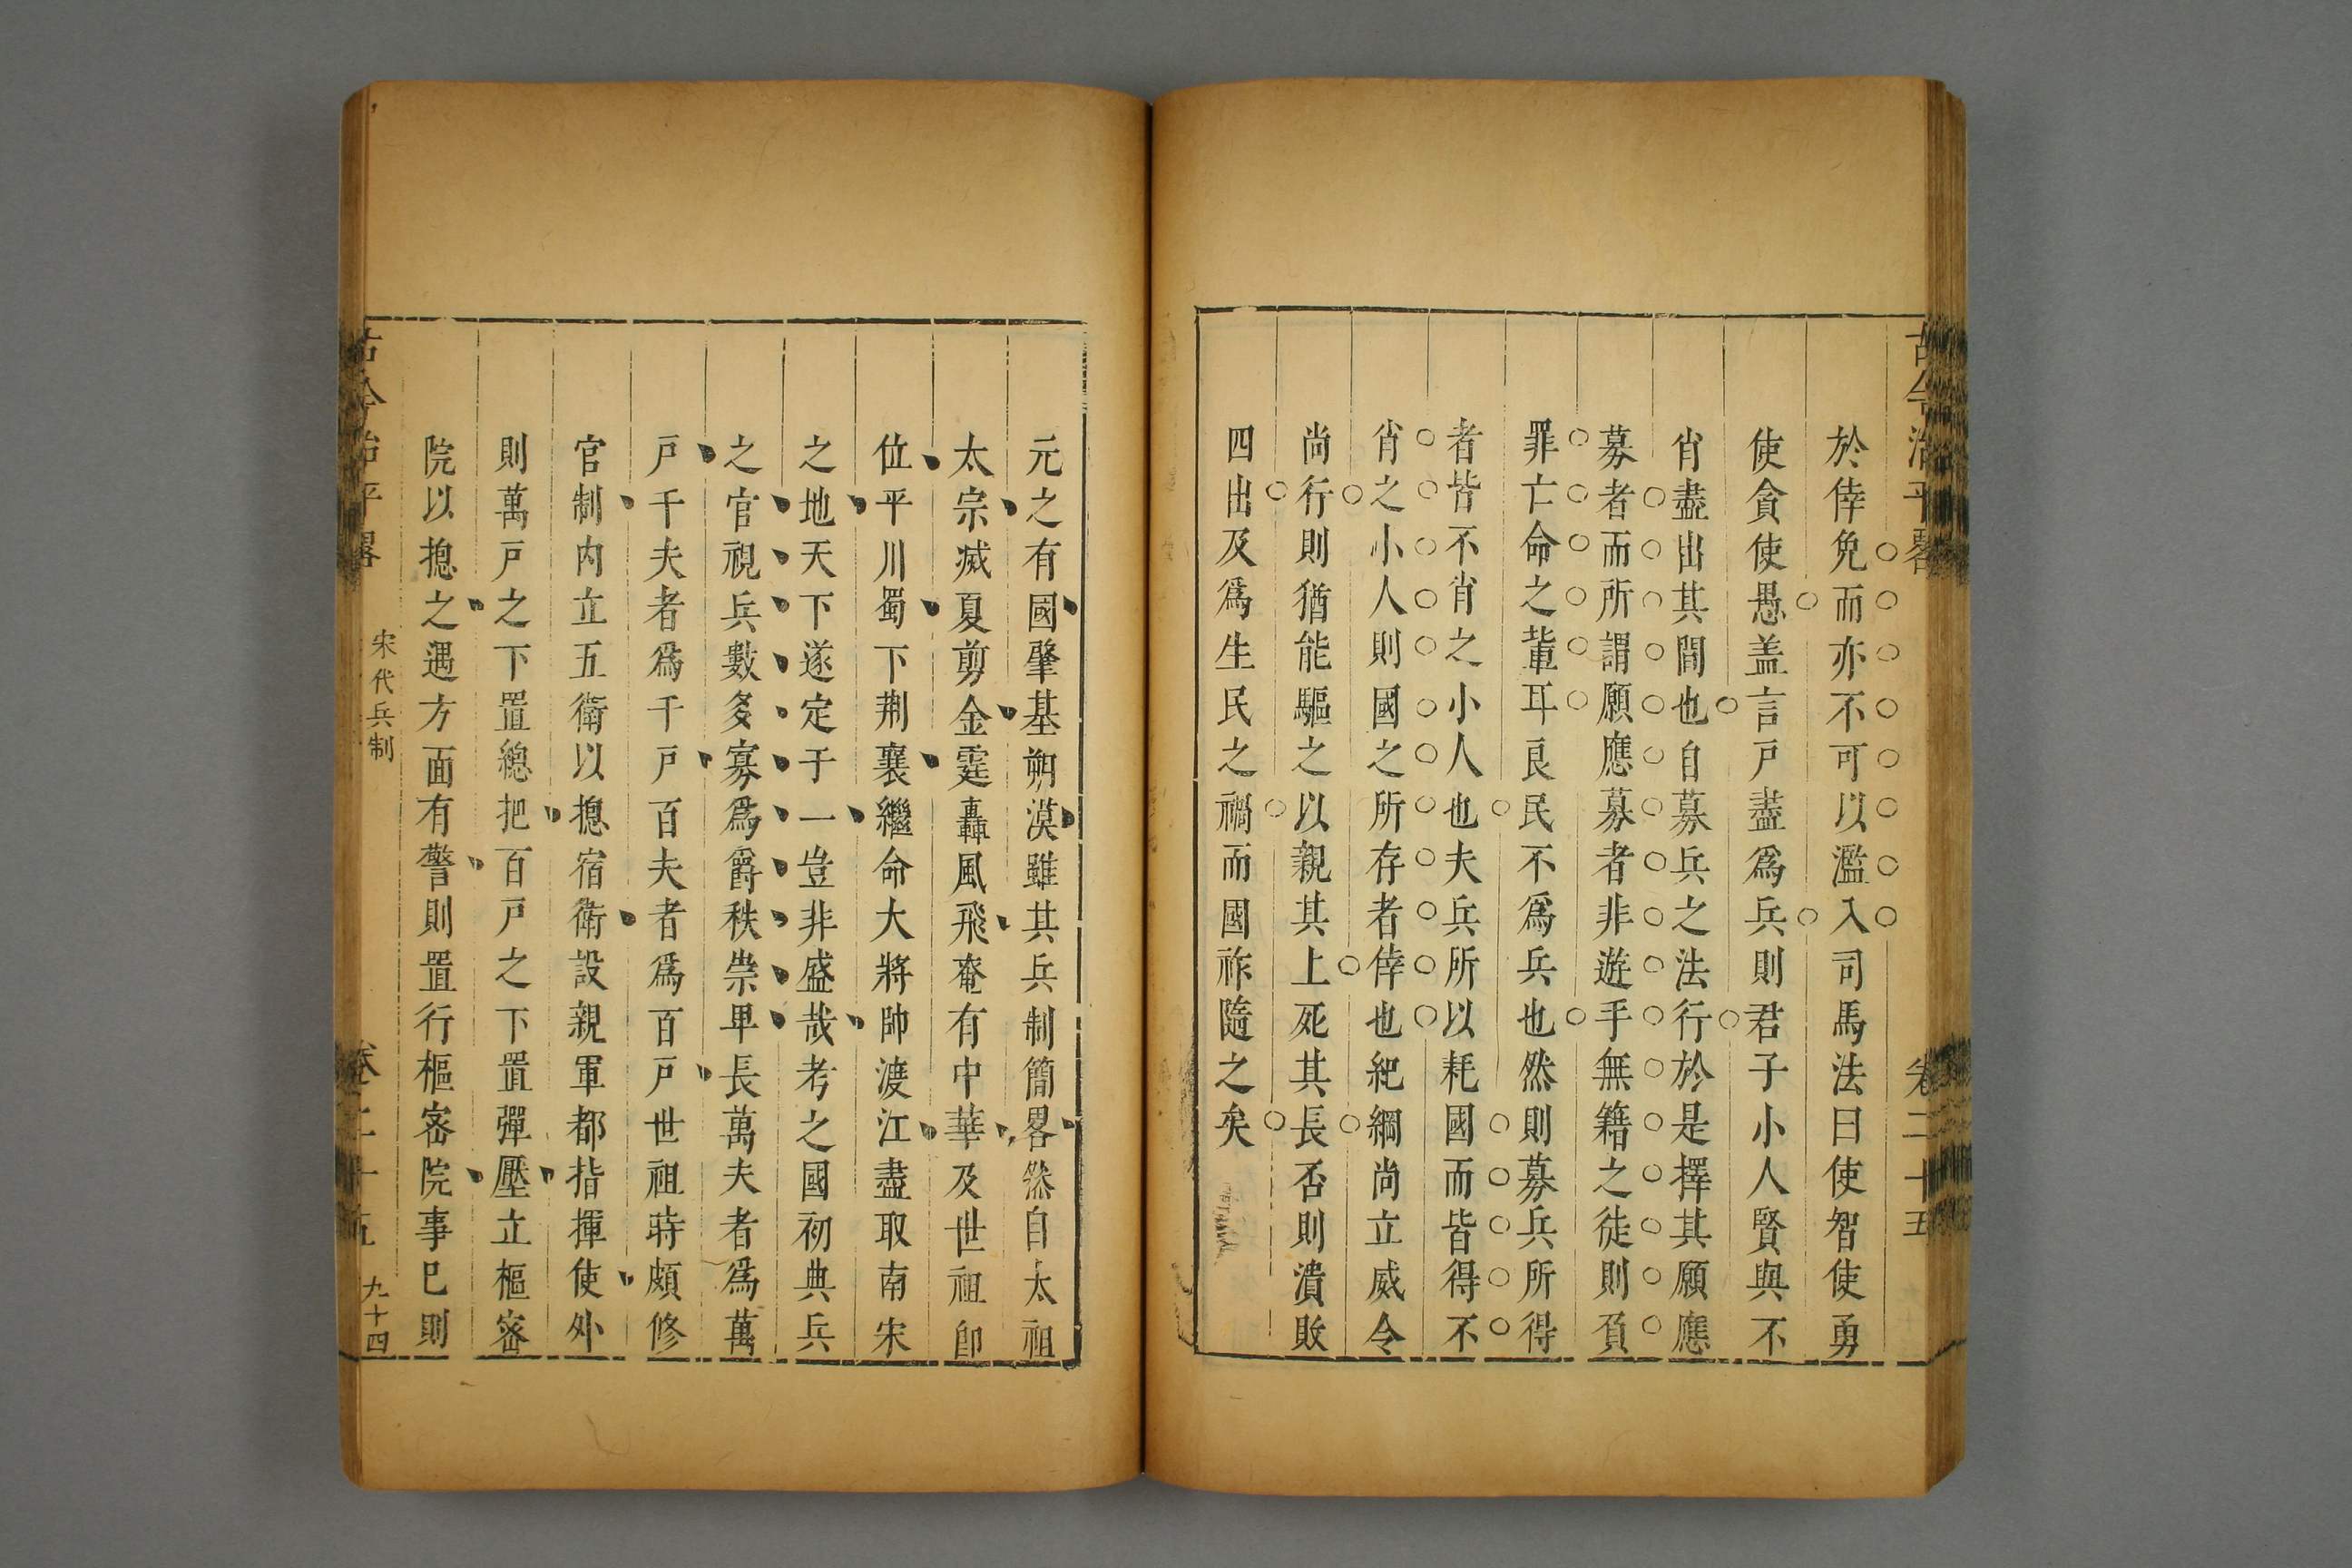 古今治平畧
卷二十五
於倖免而亦不可以濫入司馬法曰使智使勇
使貪使愚盖言戸盡爲兵則君子小人賢與不
肖盡出其間也自募兵之法行於是擇其願應
募者而所謂願應募者非遊手無籍之徒則負
罪亡命之輩耳良民不爲兵也然則募兵所得
者皆不肖之小人也夫兵所以耗國而皆得不
肖之小人則國之所存者倖也紀綱尚立威令
尚行則猶能驅之以親其上死其長否則潰敗
四出及爲生民之禍而國祚隨之矣
元之有國肇基朔漠雖其兵制簡畧然自太祖
太宗滅夏剪金霆轟風飛奄有中華及世祖卽
位平川蜀下荆襄繼命大將帥渡江盡取南宋
之地天下遂定于一豈非盛哉考之國初典兵
之官視兵數多寡爲爵秩崇卑長萬夫者爲萬
戸千夫者爲千戸百夫者爲百戸世祖時頗修
官制内立五衛以揔宿衛設親軍都指揮使外
則萬戸之下置總把百戸之下置彈壓立樞密
院以揔之遇方面有警則置行樞密院事已則
古今治平畧
宋代兵制
卷二十五
九十四